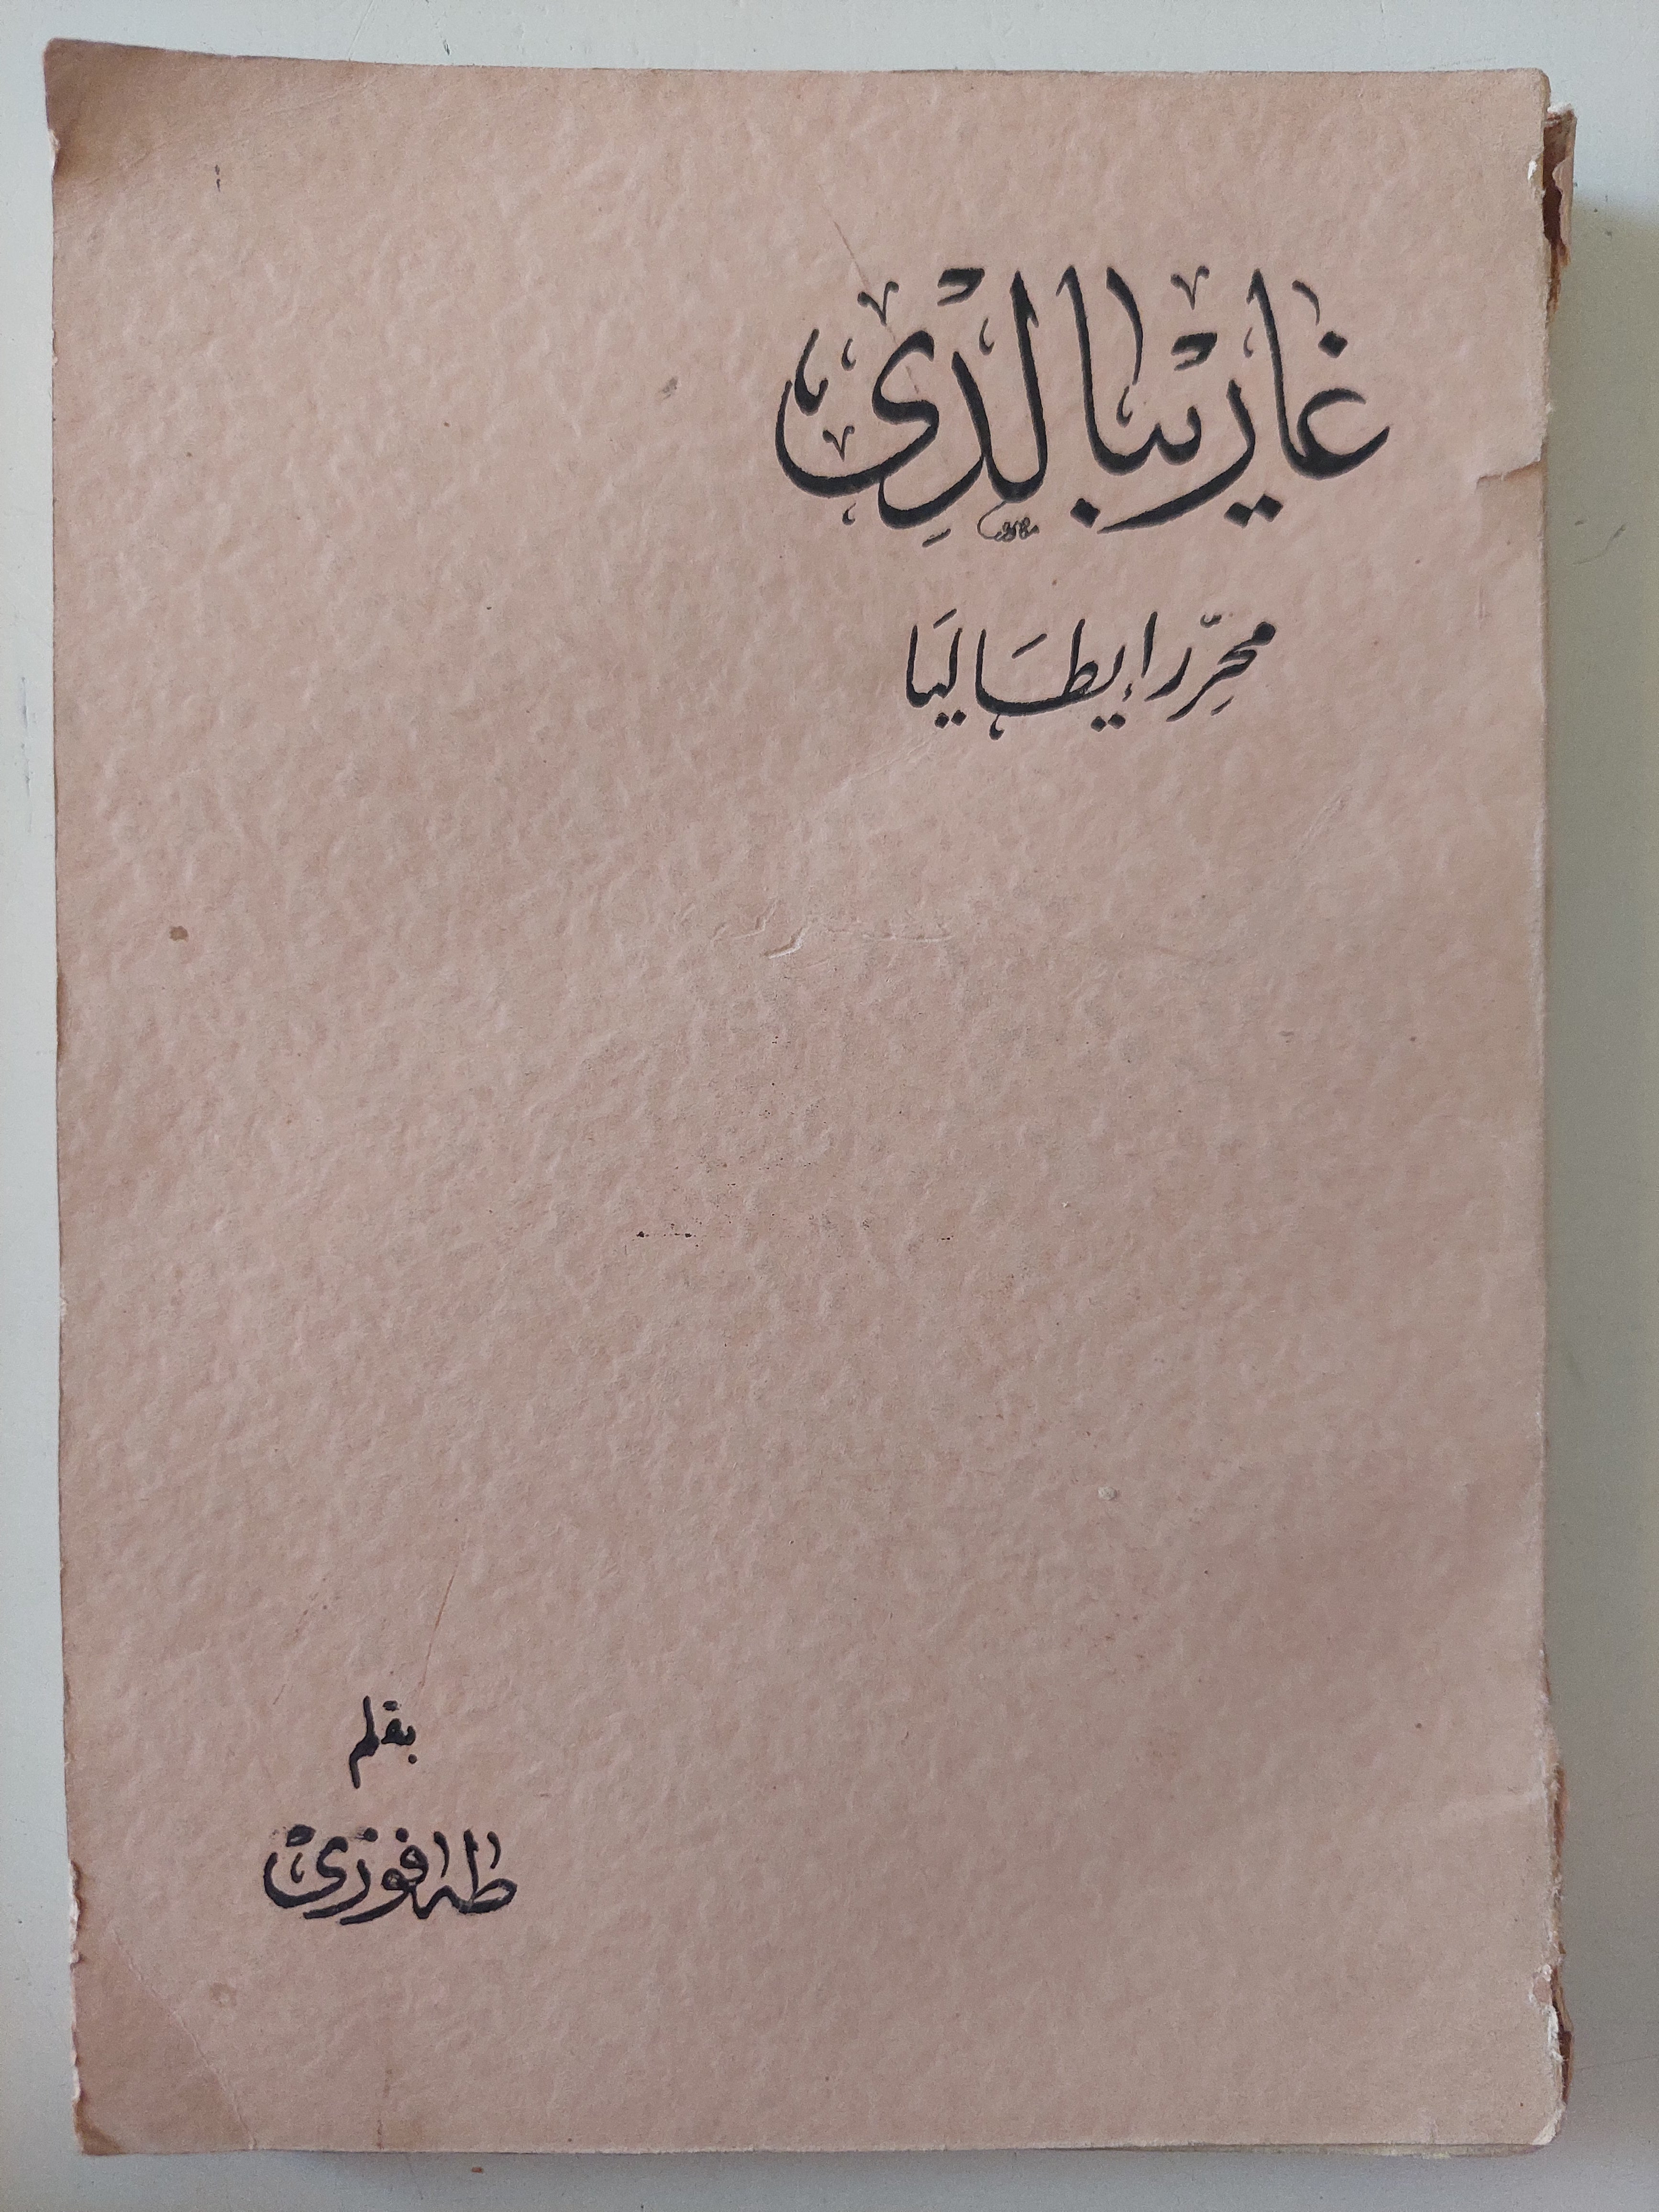 غاريبالدى
محرّر إيطاليا
بقلم
طه فوزى